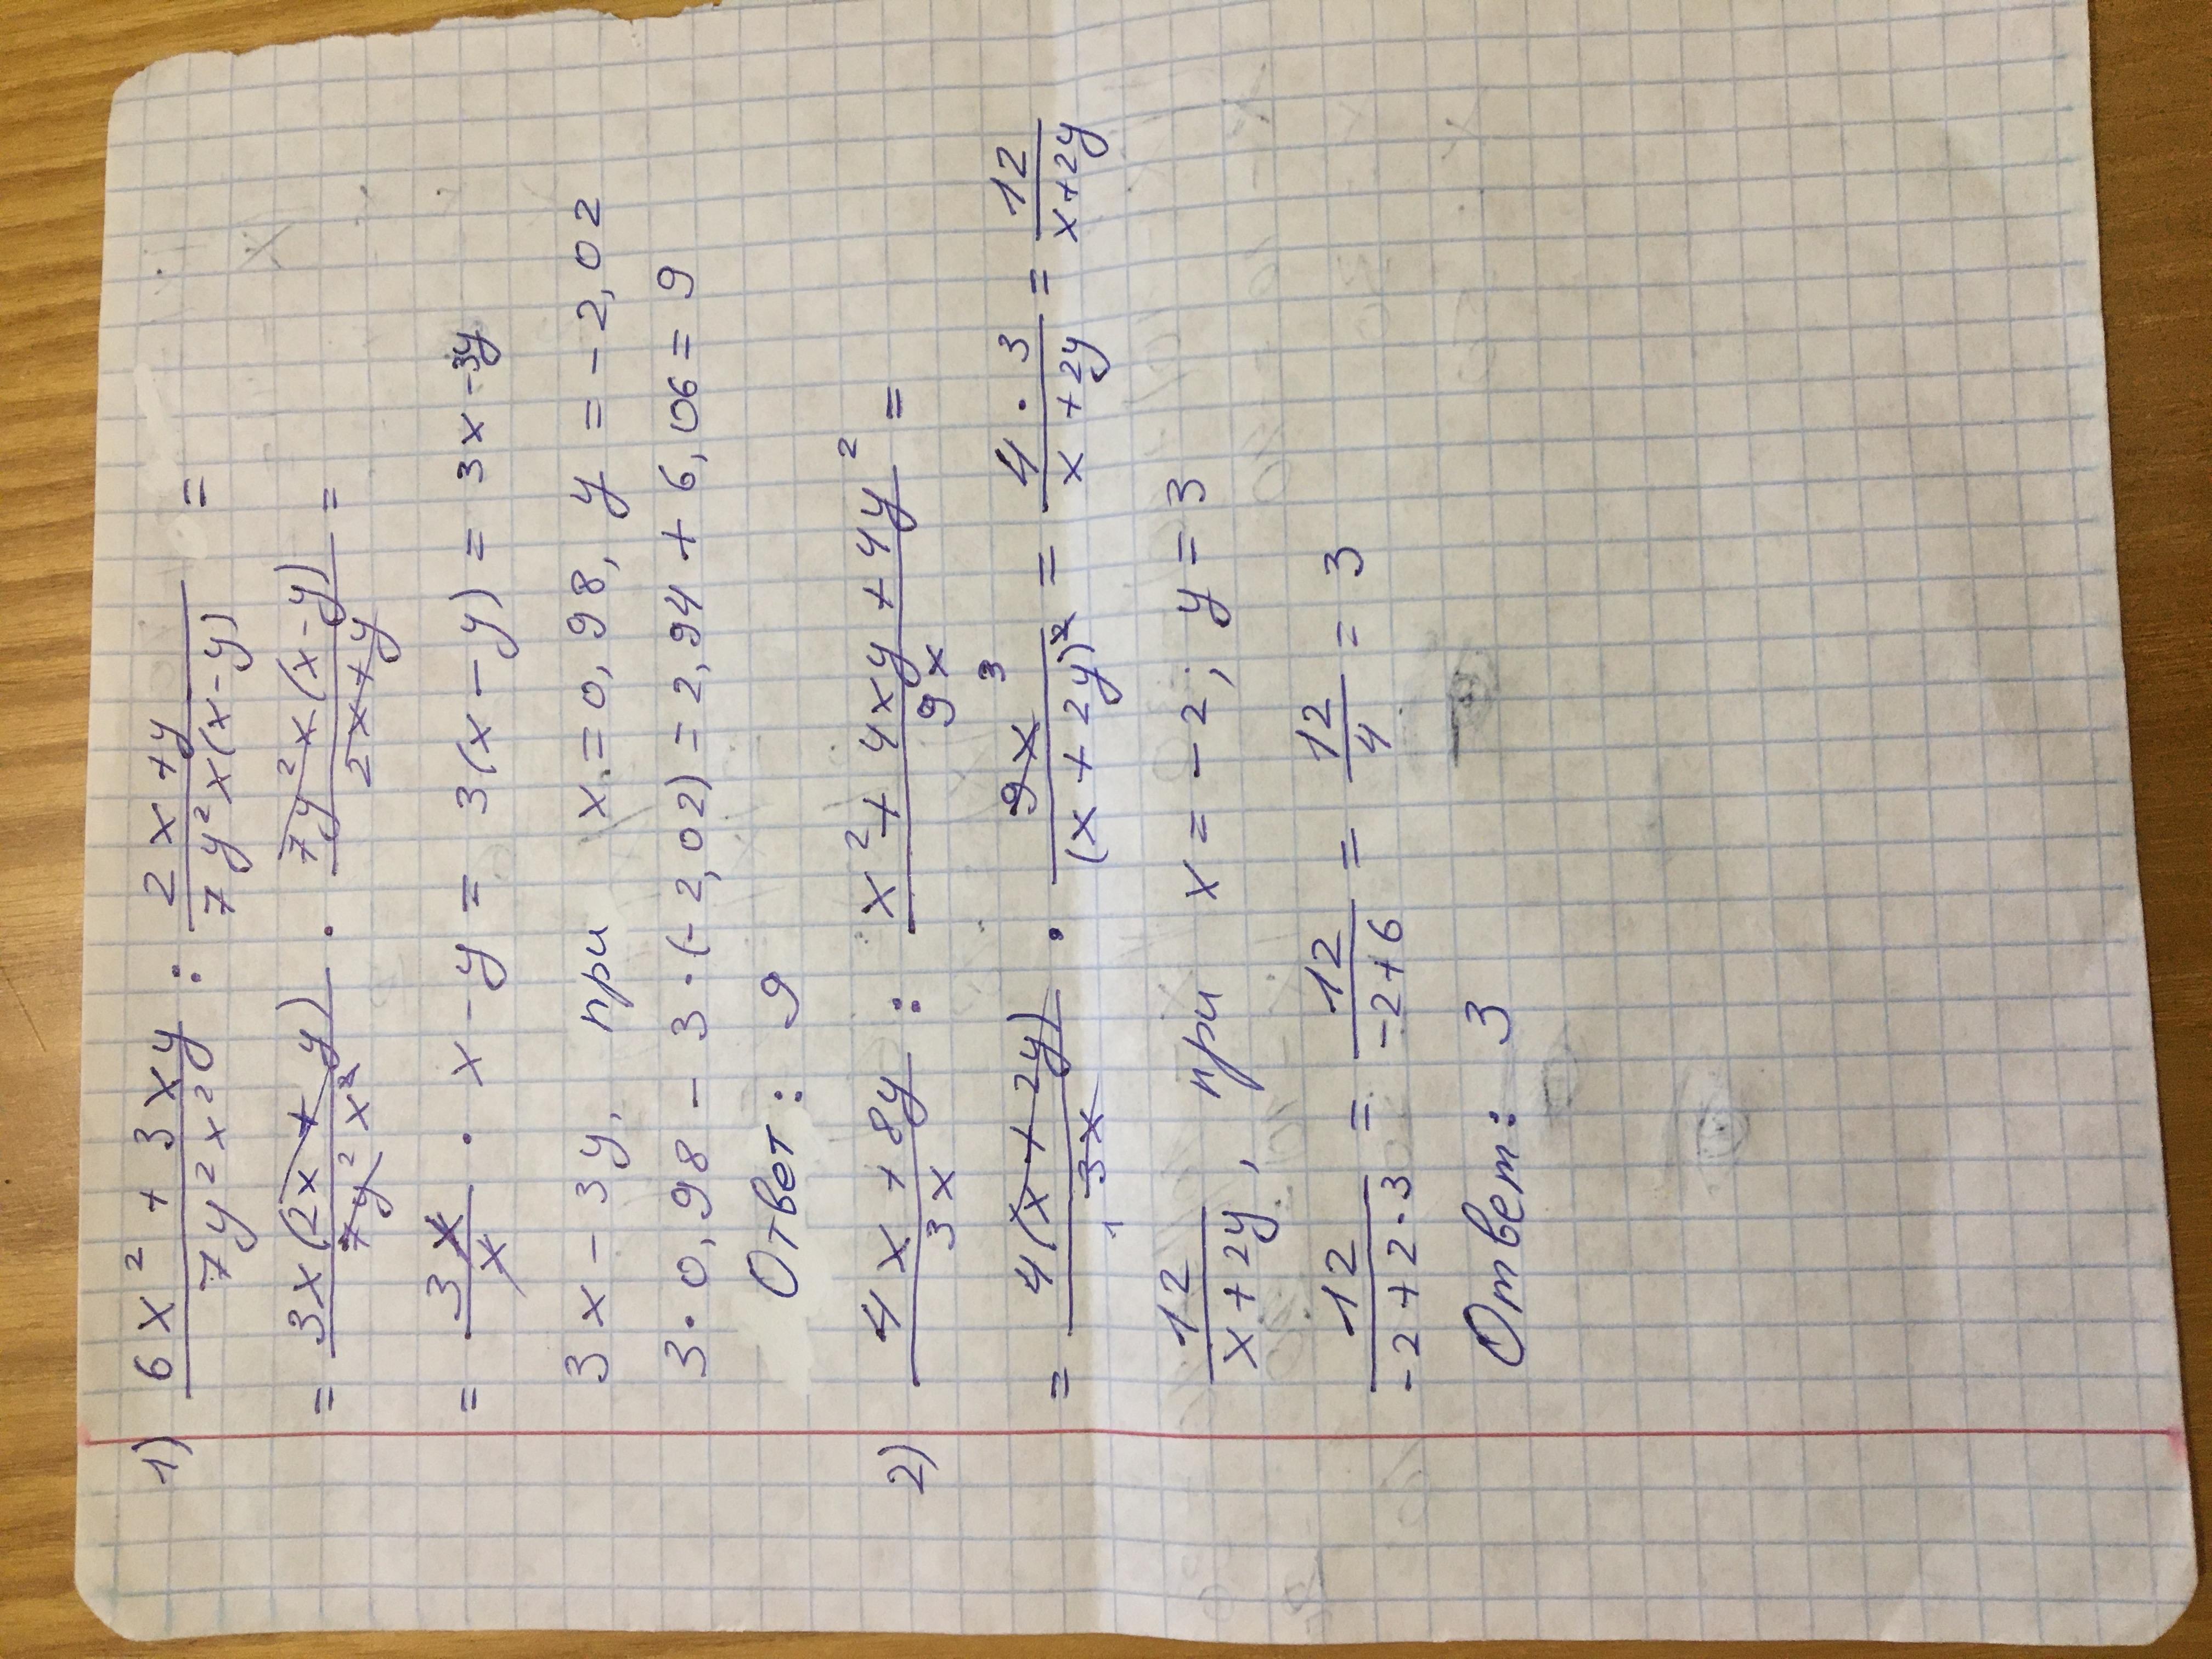 1) (6x² + 3xy)/(7y²x²) : (2x+y)/(7y²x(x-y)) =
= 3x(2x+y)/(7y²x²) · 7y²x(x-y)/(2x+y) =
= 3x/x · x-y = 3(x-y) = 3x-3y
3x-3y, при x=0,98, y=-2,02
3·0,98-3·(-2,02)=2,94+6,06=9
Ответ: 9
2) (4x+8y)/(3x) : (x²+4xy+4y²)/(9x) =
= 4(x+2y)/(3x) 1 · 9x 3/(x+2y)² = 4·3/(x+2y) = 12/(x+2y)
12/(x+2y), при x=-2; y=3
12/(-2+2·3) = 12/(-2+6) = 12/4 = 3
Ответ: 3